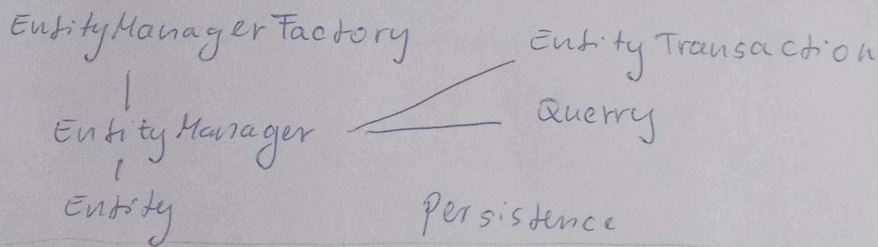 EntityManagerFactory
EntityTransaction
EntityManager
Querry
Entity
Persistence